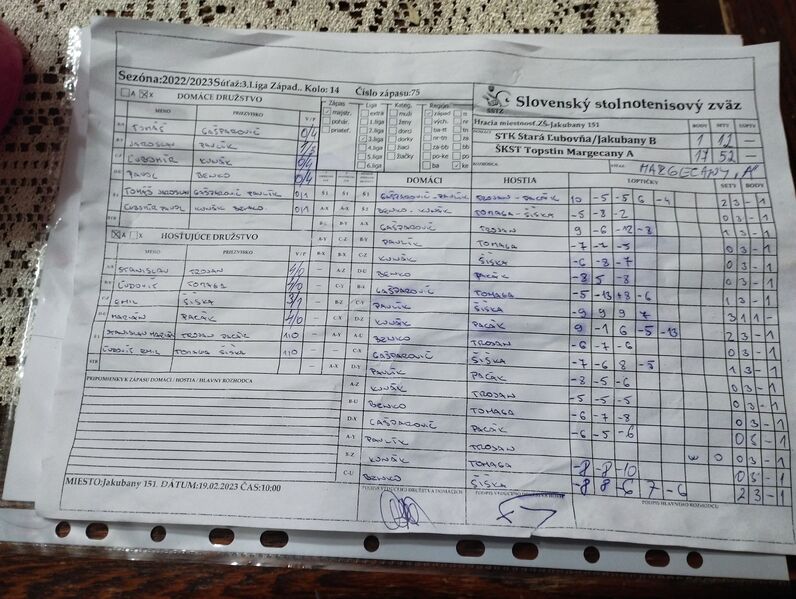 Sezóna:2022/2023Súťaž:3.Liga Západ.. Kolo: 14 Číslo zápasu:75
Slovenský stolnotenisový zväz
SSTZ
Hracia miestnosť.ZŠ-Jakubany 151
BODY SETY LOPTY
STK Stará Ľubovňa/Jakubany B 1 12 —
ŠKST Topstin Margecany A 17 52 —
MARGECANY "A"
A X DOMÁCE DRUŽSTVO
MENO PRIEZVISKO V/P
TOMÁŠ GAŠPAROVIČ 0/4
JAROSLAV PAVLÍK
ĽUBOMÍR KUŇÁK 0/4
PAVOL BENKO 0/4
TOMÁŠ JAROSLAV GAŠPAROVIČ PAVLÍK 0/1
ĽUBOMÍR PAVOL KUŇÁK BENKO 0/1
Zápas Liga Kateg. Región
majstr. extra muži západ
pohár. 1.liga ženy vých.
priateľ. 2.liga dorci
3.liga dorky
4.liga žiaci
5.liga žiačky
6.liga
HOSŤUJÚCE DRUŽSTVO
MENO PRIEZVISKO V/P
STANISLAV TROJAN 4/0
ĽUDOVÍT TOMAGA 4/0
EMIL ŠIŠKA 3/1
MARIÁN PACÁK 4/0
STANISLAV MARIÁN TROJAN PACÁK 1/0
ĽUDOVÍT EMIL TOMAGA ŠIŠKA 1/0
DOMÁCI HOSTIA LOPTIČKY SETY BODY
GAŠPAROVIČ-PAVLÍK TROJAN-PACÁK 10 -5 -5 6 -4 2 3 - 1
BENKO-KUŇÁK TOMAGA-ŠIŠKA -5 -8 -2 0 3 - 1
GAŠPAROVIČ TROJAN 9 -6 -12 -8 1 3 - 1
PAVLÍK TOMAGA -7 -7 -5 0 3 - 1
KUŇÁK ŠIŠKA -6 -8 -7 0 3 - 1
BENKO PACÁK -8 5 -8
GAŠPAROVIČ TOMAGA -5 -13 +8 -6 1 3 - 1
PAVLÍK ŠIŠKA -9 9 9 7 3 1 1 -
KUŇÁK PACÁK 9 -1 6 -5 -13 2 3 - 1
BENKO TROJAN -6 -7 -6 0 3 - 1
GAŠPAROVIČ ŠIŠKA -7 -6 8 -5 1 3 - 1
PAVLÍK PACÁK -8 -5 -6 0 3 - 1
KUŇÁK TROJAN -5 -5 -5 0 3 - 1
BENKO TOMAGA -6 -7 -8 0 3 - 1
GAŠPAROVIČ PACÁK -6 -5 -6 0 3 - 1
PAVLÍK TROJAN W O 0 3 - 1
KUŇÁK TOMAGA -8 -8 -10 0 3 - 1
BENKO ŠIŠKA -8 8 -6 7 -6 2 3 - 1
PRIPOMIENKY K ZÁPASU DOMÁCI / HOSTIA / HLAVNÝ ROZHODCA
MIESTO:Jakubany 151. DÁTUM:19.02.2023 ČAS:10:00
PODPIS VEDÚCEHO DRUŽSTVA DOMÁCICH
PODPIS VEDÚCEHO DRUŽSTVA HOSTÍ
PODPIS HLAVNÉHO ROZHODCU